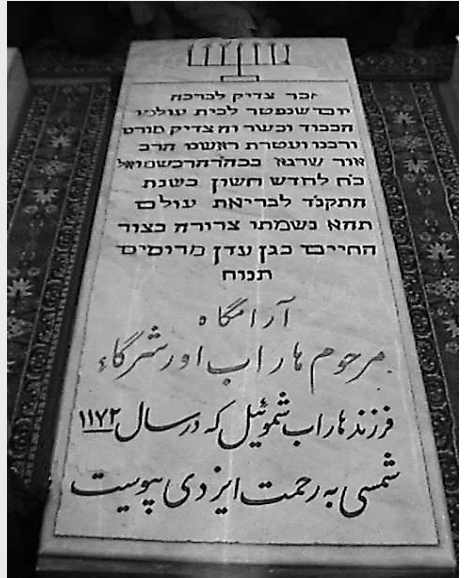 זכר צדיק לברכה
יום שנפטר לבית עולמו
הכבוד וכשר וה צדיק מורט
ורבנו ועטרת ראשנו הרב
אור שרגא בכה׳ר הר׳ שמואל
כ׳ח לחדש חשון בשנת
התקנ׳ד לבריאת עולם
תהא נשמתו צרורה בצור
החיים בגן עדן מרומים
תנוח
آرامگاه
مرحوم هاراب اورشرگاء
فرزند هاراب شموئیل که در سال ۱۱۷۲
شمسی به رحمت ایزدی پیوست